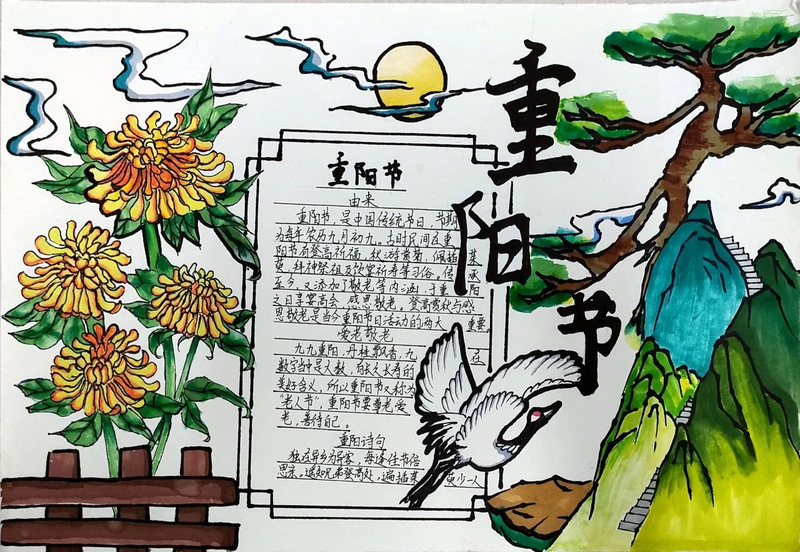 重阳节
重阳节
由来
重阳节,是中国传统节日,节期
为每年农历九月初九。古时民间在重
阳节有登高祈福、秋游赏菊、佩插茱
萸、拜神祭祖及饮宴祈寿等习俗。传承
至今,又添加了敬老等内涵,于重阳
之日享宴高会,感恩敬老。登高赏秋与感
恩敬老是当今重阳节日活动的两大重要
爱老敬老
九九重阳,丹桂飘香,九在
数字中是大数,有长久长寿的
美好含义,所以重阳节又称为
"老人节"。重阳节要尊老爱
老,善待自己。
重阳诗句
独在异乡为异客,每逢佳节倍
思亲。遥知兄弟登高处,遍插茱萸少一人